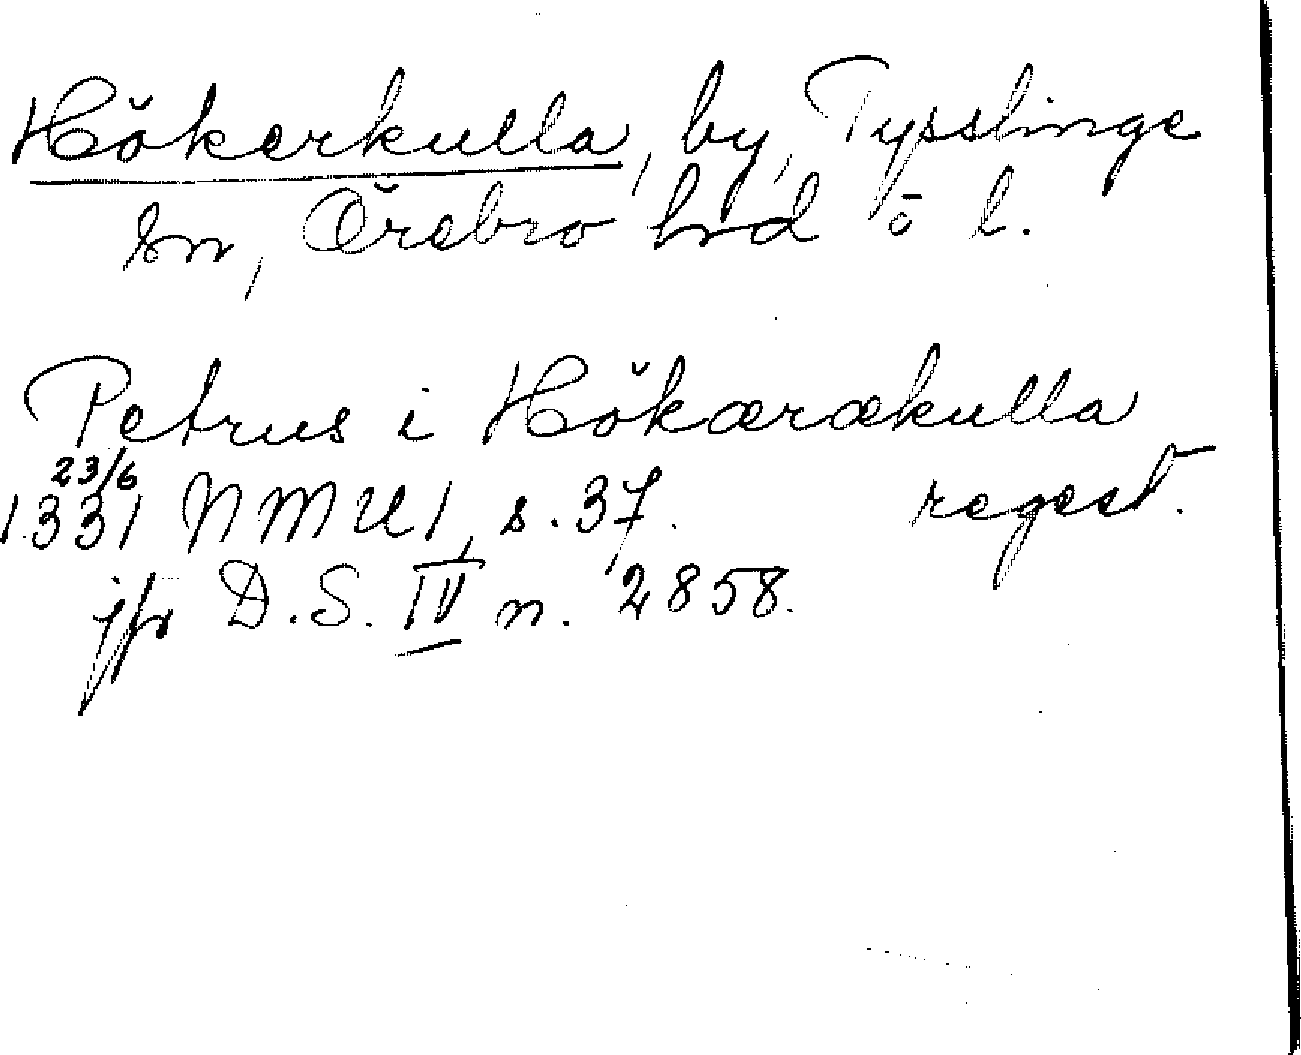 Hökerkulla, by, Tysslinge
sn, Örebro hrd ö l.
Petrus i Hökærækulla
23/6
1331 NMU 1, s. 37. regest.
jfr D.S. IV n. 2858.